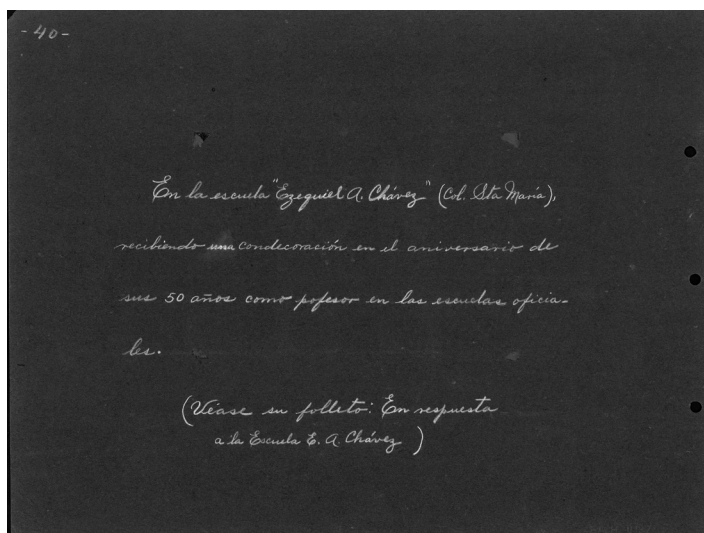 -40-
En la escuela "Ezequiel A. Chávez" (Col. Sta María),
recibiendo una condecoración en el aniversario de
sus 50 años como pofesor en las escuelas oficia-
les.
(Véase su folleto: En respuesta
a la Escuela E. A. Chávez)